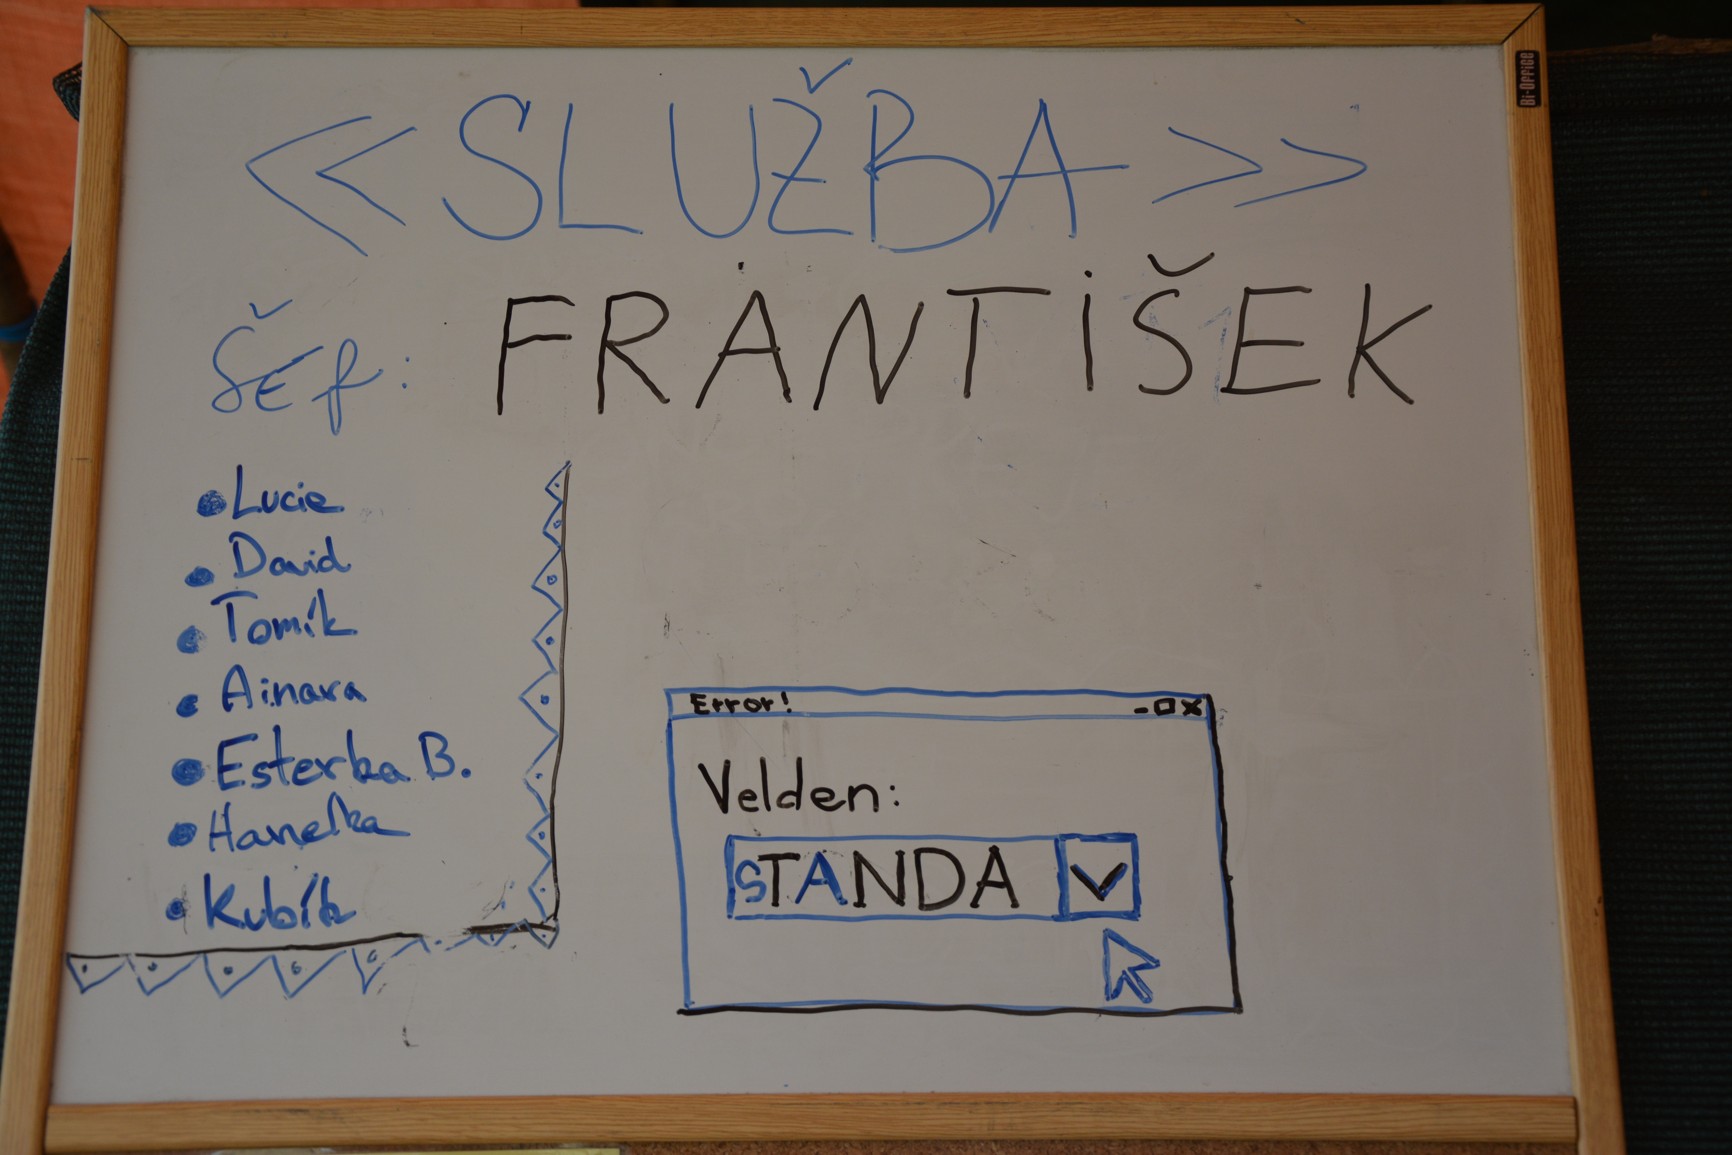 << SLUŽBA >>
Šéf: FRANTIŠEK
• Lucie
• David
• Tomík
• Ainara
• Esterka B.
• Hanelka
• Kubík
Error! -□x
Velden:
STANDA
Bi-Office